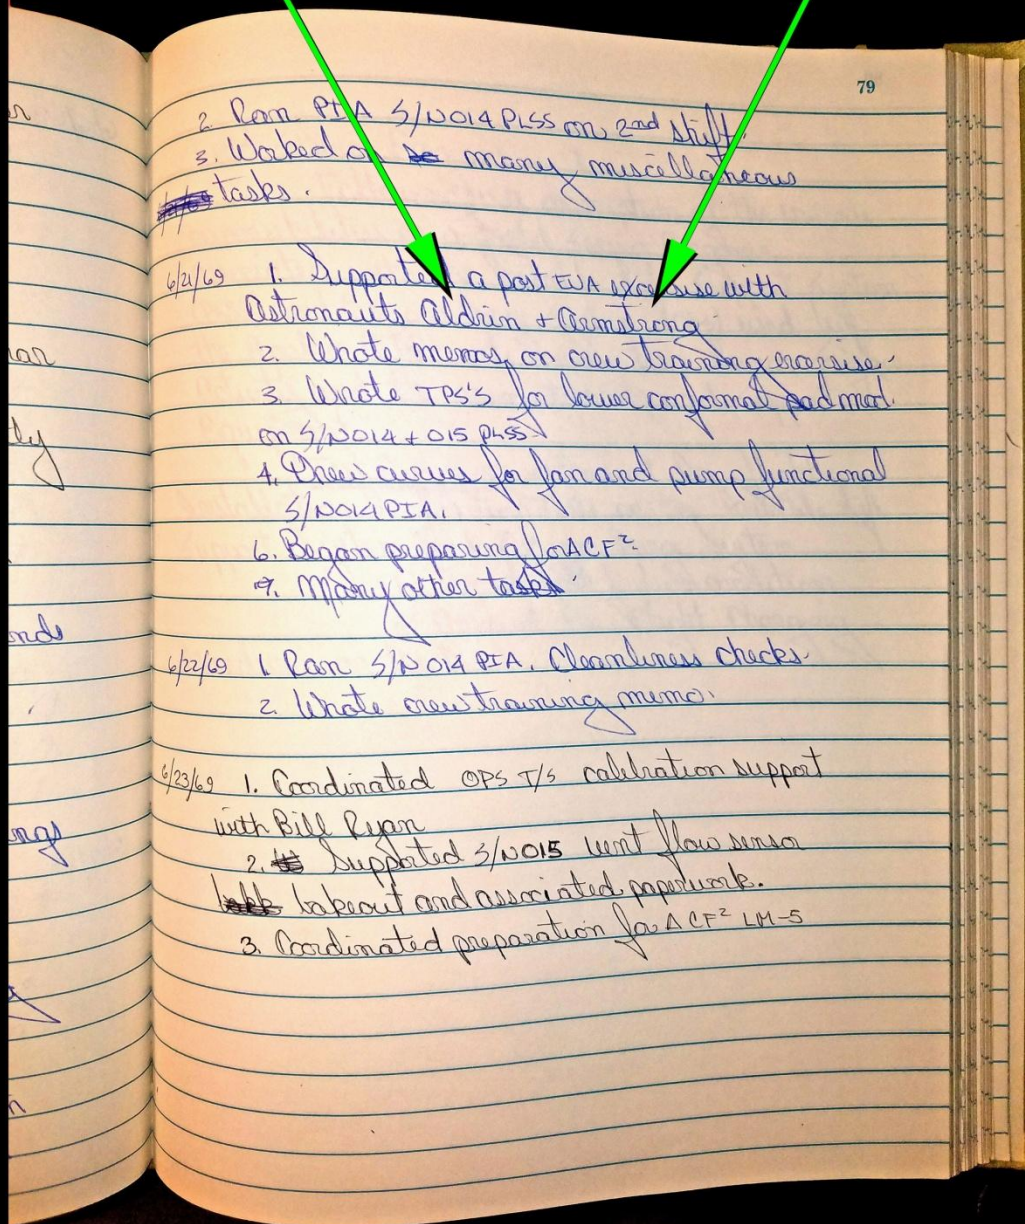 79
2. Ran PIA S/N014 PLSS on 2nd shift.
3. Worked on many miscellaneous
tasks.
6/21/69 1. Supported a post EVA exercise with
Astronauts Aldrin + Armstrong
2. Wrote memos on crew training exercise.
3. Wrote TPS's for lower conformal pad mod.
on S/N014 + 015 PLSS.
4. Drew curves for fan and pump functional
S/N014 PIA.
6. Began preparing for ACF²
7. Many other tasks.
6/22/69 1. Ran S/N 014 PIA. Cleanliness checks.
2. Wrote crew training memo.
6/23/69 1. Coordinated OPS T/S calibration support
with Bill Ryan
2. Supported S/N015 vent flow sensor
bakeout and associated paperwork.
3. Coordinated preparation for ACF² LM-5